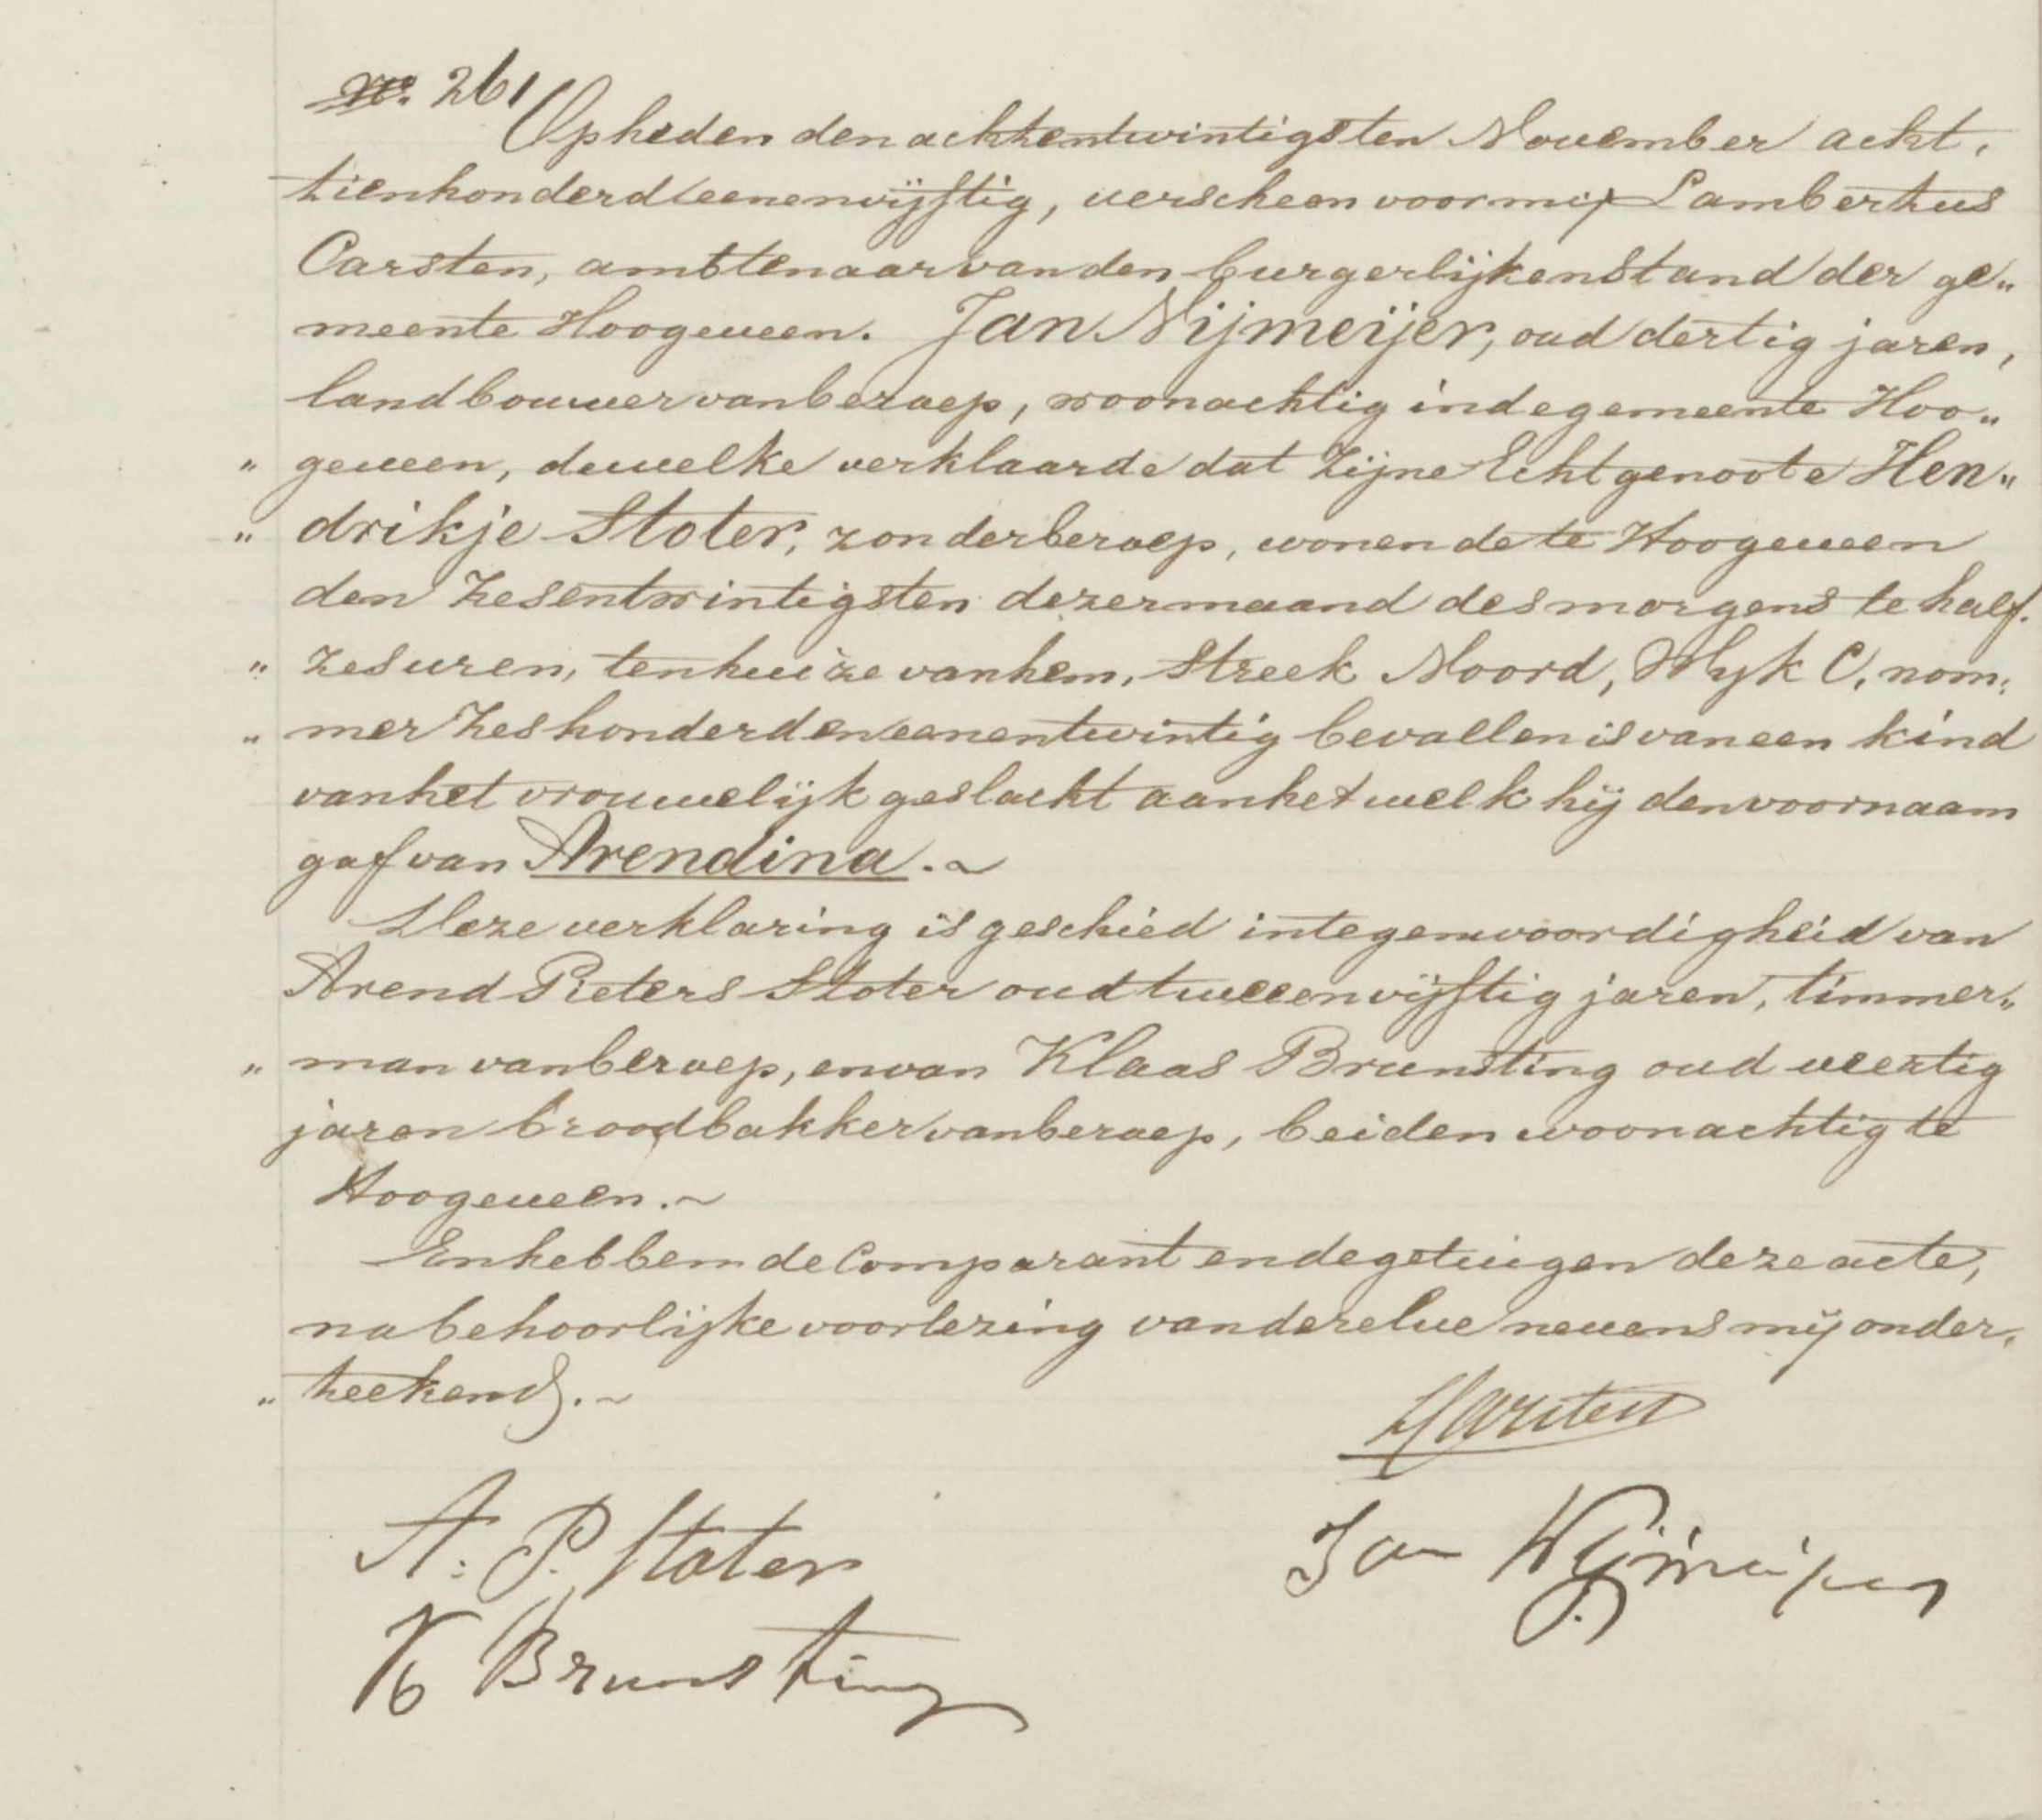 No. 261
Op heden den achtentwintigsten November acht,
tienhonderd eenenvijftig, verscheen voor mij Lambertus
Carsten, ambtenaar van den burgerlijken stand der ge„
meente Hoogeveen. Jan Nijmeijer, oud dertig jaren,
landbouwer van beroep, woonachtig in de gemeente Hoo„
„ geveen, dewelke verklaarde dat zijne Echtgenoote Hen„
„ drikje Stoter, zonder beroep, wonende te Hoogeveen
den zesentwintigsten dezer maand des morgens te half.
„ zes uren, ten huize van hem, Streek Noord, Wyk C, nom,
„ mer zeshonderd en eenentwintig bevallen is van een kind
van het vrouwelijk geslacht aan het welk hij den voornaam
gaf van Arendina. ~
Deze verklaring is geschied in tegenwoordigheid van
Arend Pieters Stoter oud tweeenvijftig jaren, timmer„
„ man van beroep, en van Klaas Brunsting oud veertig
jaren broodbakker van beroep, beiden woonachtig te
Hoogeveen. ~
En hebben de Comparant en de getuigen deze acte,
na behoorlijke voorlezing van dezelve nevens mij onder,
„ teekend. ~
LCarsten
A. P. Stoter
Jan Nijmeijer
K Brunsting